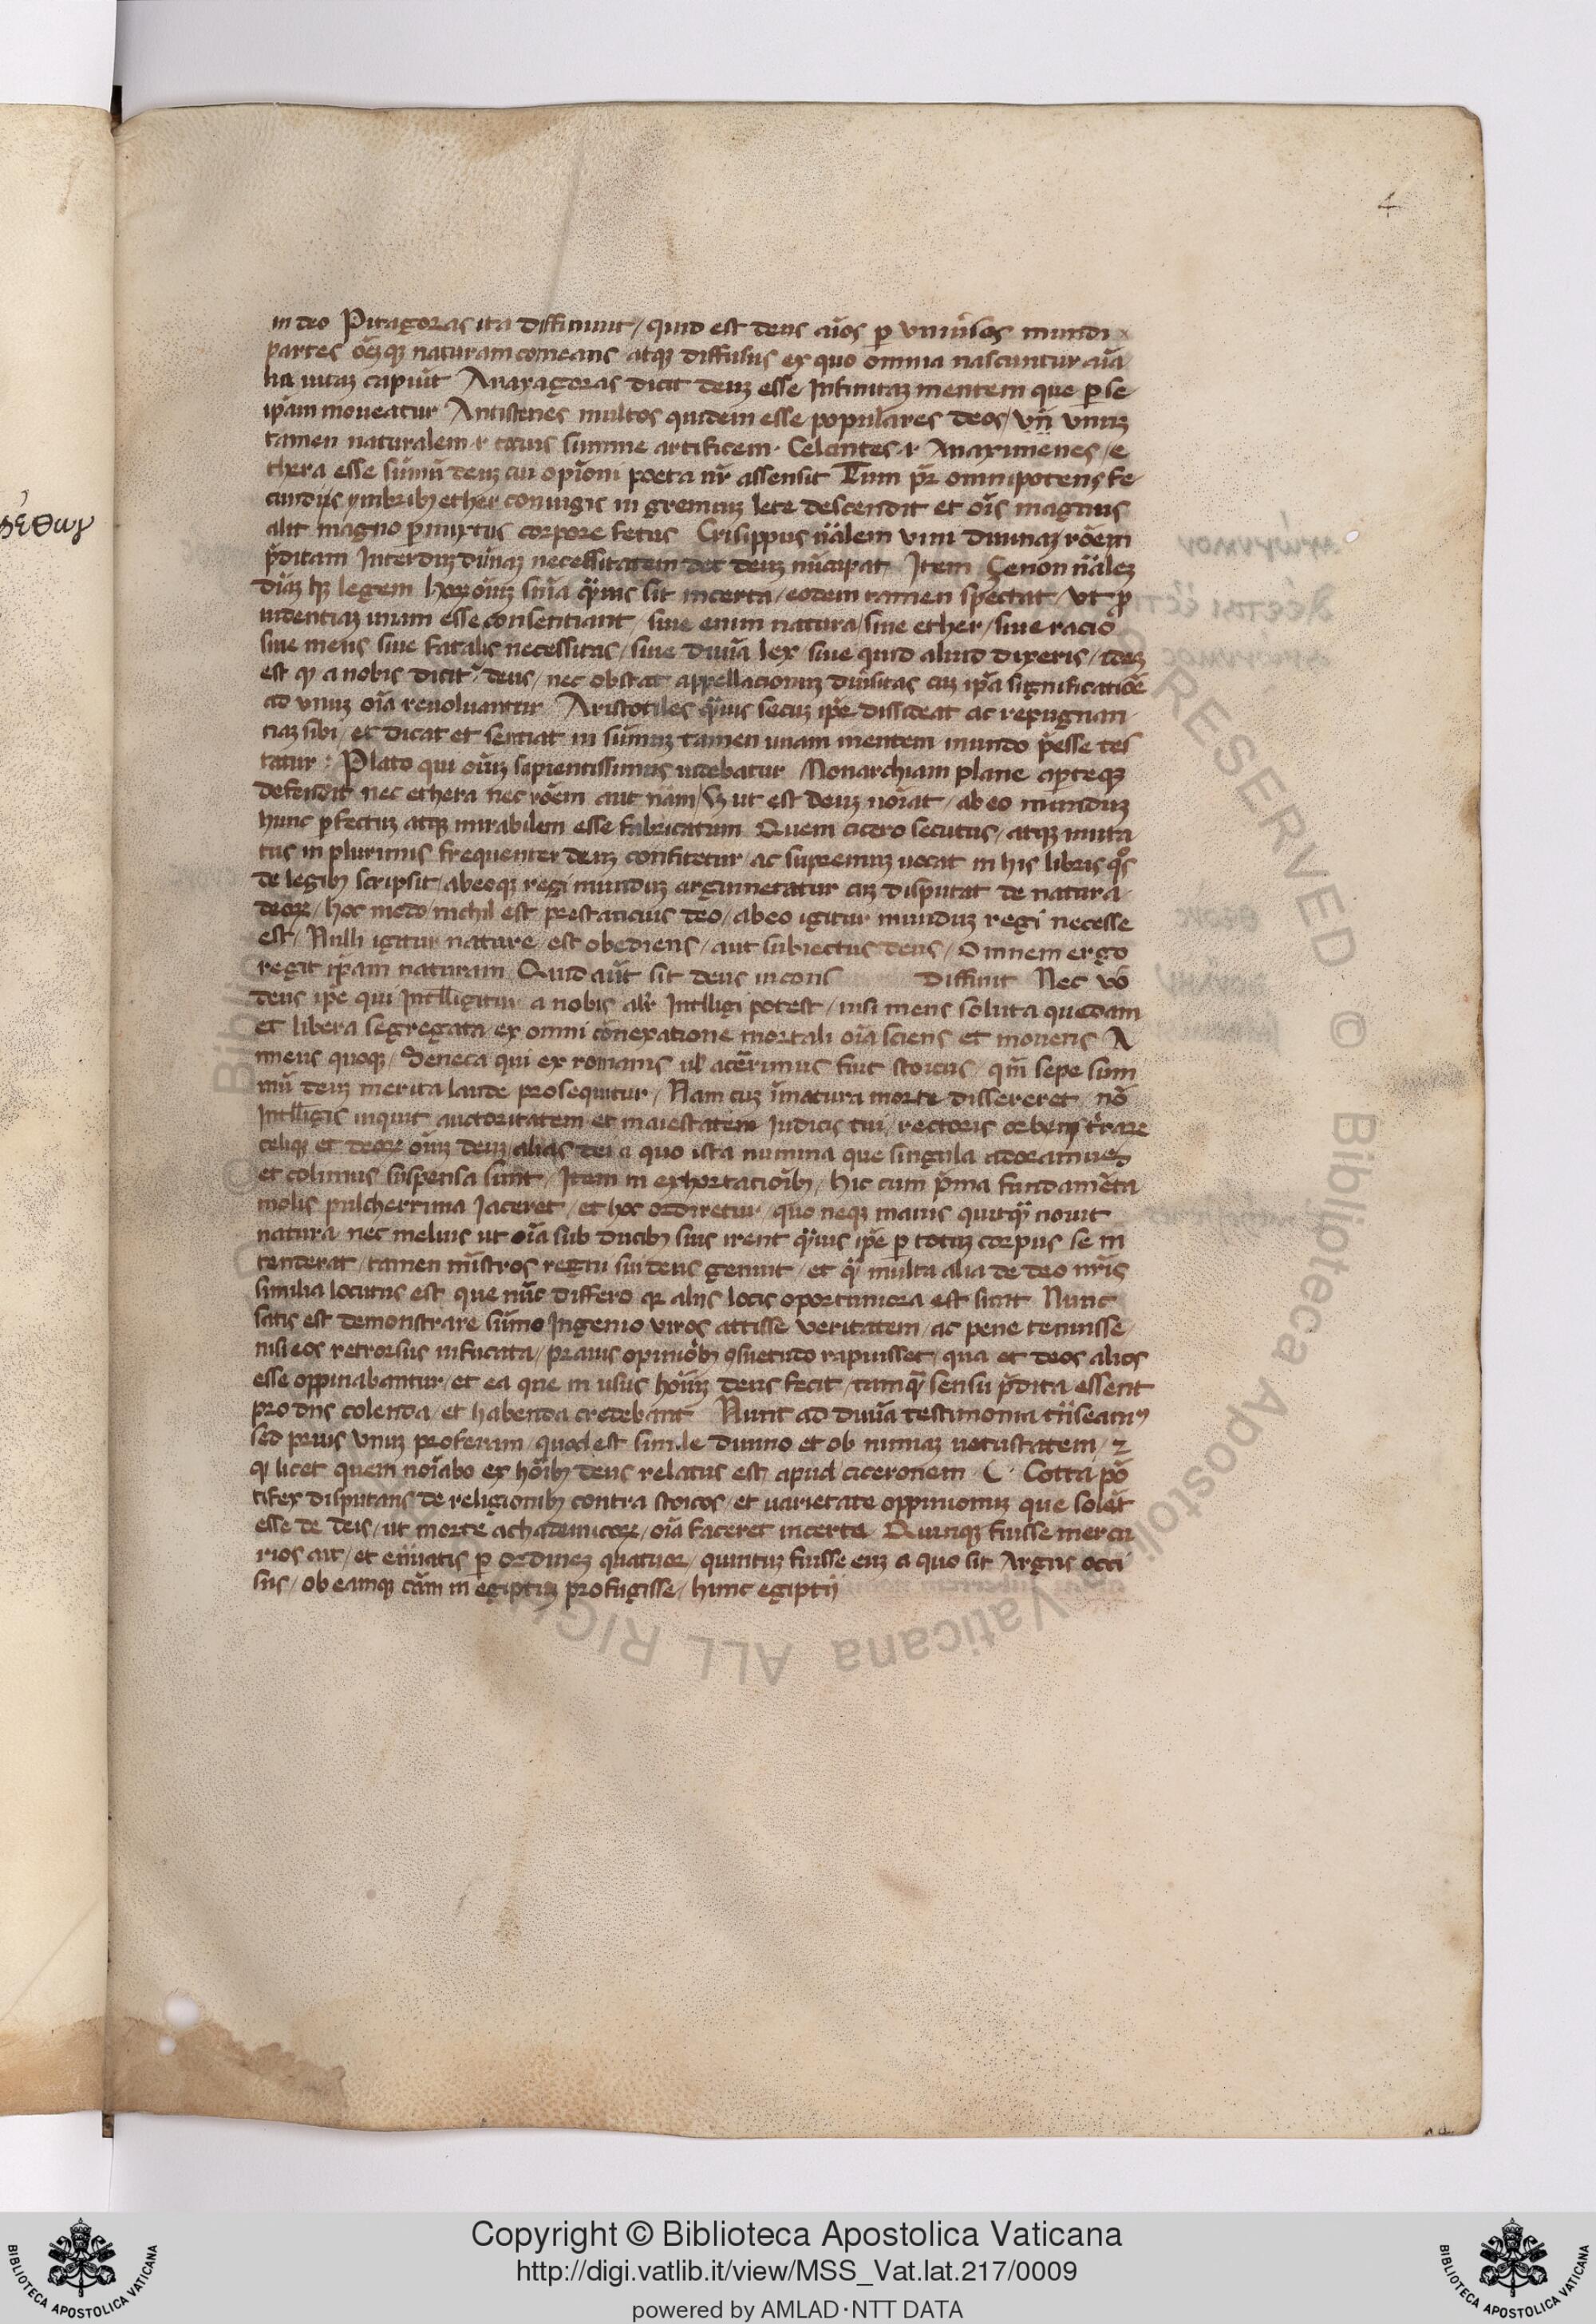 4
in deo Pitagoras ita diffiniuit / quid est deus aīos p vniu̓sos mundi
partes oēꝫqꝫ naturam comeans atqꝫ diffusus ex quo omnia nascuntur aīā
lia uitaꝫ capiūt Anaxagoras dicit deuꝫ esse Infinitaꝫ mentem que p se
ip̄am moueatur Antistenes multos quidem esse populares deos / vnuꝫ
tamen naturalem summe artificem · Celantes ·⁊ Anaximenes / e
thera esse sūmū deuꝫ cui opīoni poeta nr̄ assensit Tum pr̄ omnipotens fe
cundis ymbribꝫ ether coniugis in gremiuꝫ lete descendit et oīs magnus
alit magno pmixtus corpore fetus Crisippus nālem vim diuinaꝫ rōem
p̄ditam Interduꝫ diuinaꝫ necessitatem deuꝫ nūcupat Item Çenon nāleꝫ
legem incerta / eodem tamen spectat / vt p
uidentiaꝫ unam esse consentiant / siue enim natura / siue ether / siue racio
siue mens siue fatalis necessitas / siue diuīa lex / siue quid aliud dixeris / ideꝫ
est qꝫ a nobis dicit̓ deus / nec obstat appellacionuꝫ diu̓sitas cuꝫ ip̄a significatiōē
ad vnuꝫ oīa reuoluantur Aristotiles qͣuis secuꝫ ip̄e dissideat ac repugnan
ciaꝫ sibi / et dicat et sentiat in sūmuꝫ tamen unam mentem mundo p̄esse tes
tatur : Plato qui oīuꝫ sapientissimus uidebatur Monarchiam plane apteqꝫ
defendit nec ethera nec rōem aut nām / sꝫ ut est deuꝫ noīat / ab eo munduꝫ
hunc pfectuꝫ atqꝫ mirabilem esse fabricatum Quem cicero secutus / atqꝫ imita
tus in plurimis frequenter deuꝫ confitetur / ac supremuꝫ uocat in his libris qͦs
de legibꝫ scripsit / abeoqꝫ regi munduꝫ argumētatur cuꝫ disputat de natura
deoꝝ / hoc modo / nichil est prestancius deo / abeo igitur munduꝫ regi necesse
est / Nulli igitur nature / est obediens / aut subiectus deus / Omnem ergo
regit ip̄am naturam Quid aūt sit deus in cons diffinit Nec vō
deus ip̄e qui Intlligitur a nobis alr̄ Intlligi potest / nisi mens soluta quedam
et libera segregata ex omni cōnexatione mortali oīa sciens et mouens A
nneus quoqꝫ / Seneca qui ex romanis ul̓ acerimus fuit stoicus / qm̄ sepe sum
mū deuꝫ merita laude prosequitur / Nam cuꝫ īmatura morte dissereret / nō
Intlligis inquit auctoritatem et maiestatem Iudicis tui / rectoris orbem t̓raꝝ
celiqꝫ et deoꝝ oīuꝫ deuꝫ alias dei a quo ista numina que singula adoramus
et colimus suspensa sunt / Item in exhortaciōibꝫ / hic cum p̄ma fundamēta
molis pulcherrima Iaceret / et hoc ordiretur / quo neqꝫ maius quicqͣ nouit
natura nec melius ut oīa sub ducibꝫ suis irent qͣuis ip̄e p totuꝫ corpus se in
tenderat / tamen mīstros regni sui deus genuit / et qͣ multa alia de deo nr̄is
similia locutus est que nūc differo qꝛ aliis locis oportuniora est sunt Nunc
satis est demonstrare sūmo Ingenio viros attisse veritatem / ac pene tenuisse /
nisi eos retrorsus infucata / prauis opiniōibꝫ ꝯsuetudo rapuisset / qua et deos alios
esse oppinabantur / et ea que in usus hoīuꝫ deus fecit / tamqͣ sensu p̄dita essent
pro diis colenda / et habenda credebant Nunc ad diuīa testimonia tn̄seamꝰ
sed prius vnuꝫ proferam / quod est simile diuino et ob nimiaꝫ uetustatem / ⁊
qꝫ licet quem noīabo ex hoībꝫ deus relatus est apud ciceronem · C · Cotta pō
tifex disputans de religionibꝫ contra stoicos / et uarietate oppinionuꝫ que solet
esse de deis / ut morte achademicoꝝ / oīa faceret incerta Quinqꝫ fuisse mercu
rios ait / et enūatis p ordineꝫ quatuor / quintuꝫ fuisse euꝫ a quo sit Argus occi
sus / ob eamqꝫ cām in egiptuꝫ profugisse / hunc egiptii
Copyright © Biblioteca Apostolica Vaticana
http://digi.vatlib.it/view/MSS_Vat.lat.217/0009
powered by AMLAD·NTT DATA
BIBLIOTECA APOSTOLICA VATICANA
BIBLIOTECA APOSTOLICA VATICANA